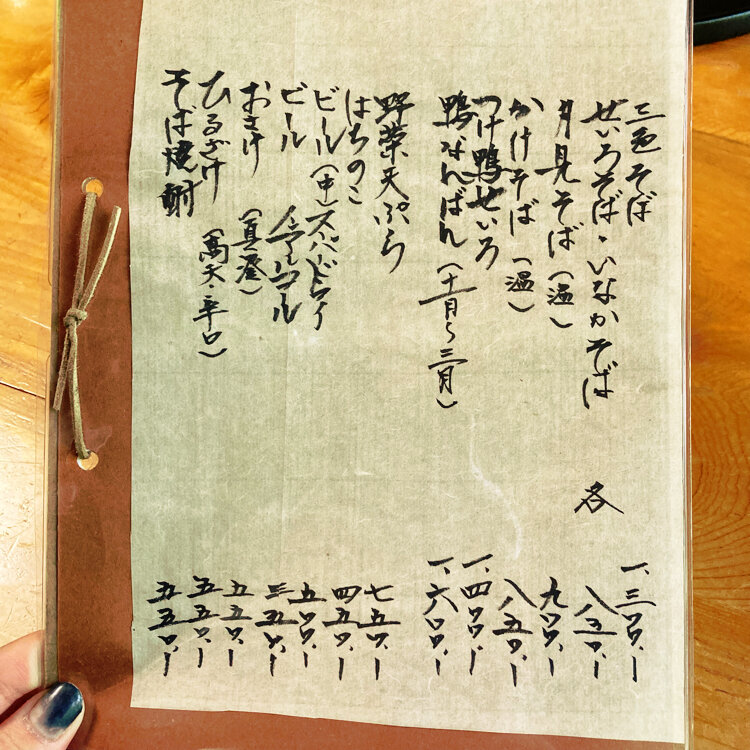 三色そば 一、三〇〇、ー
せいろそば・いなかそば 各 八五〇、ー
月見そば(温) 九〇〇、ー
かけそば(温) 八五〇、ー
つけ鴨せいろ 一、四〇〇、ー
鴨なんばん(十一月〜三月) 一、六〇〇、ー
野菜天ぷら 七五〇、ー
はちのこ 四五〇、ー
ビール(中)スーパードライ 五〇〇、ー
ビール ノンアルコール 三五〇、ー
おさけ(真澄) 五五〇、ー
ひるざけ(高天・辛口) 五五〇、ー
そば焼酎 五五〇、ー